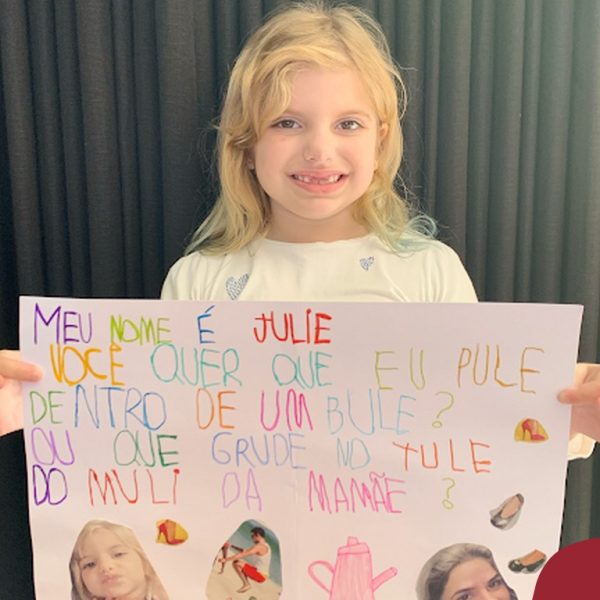 MEU NOME É JULIE
VOCÊ QUER QUE EU PULE
DENTRO DE UM BULE?
OU QUE GRUDE NO TULE
DO MULI DA MAMÃE?